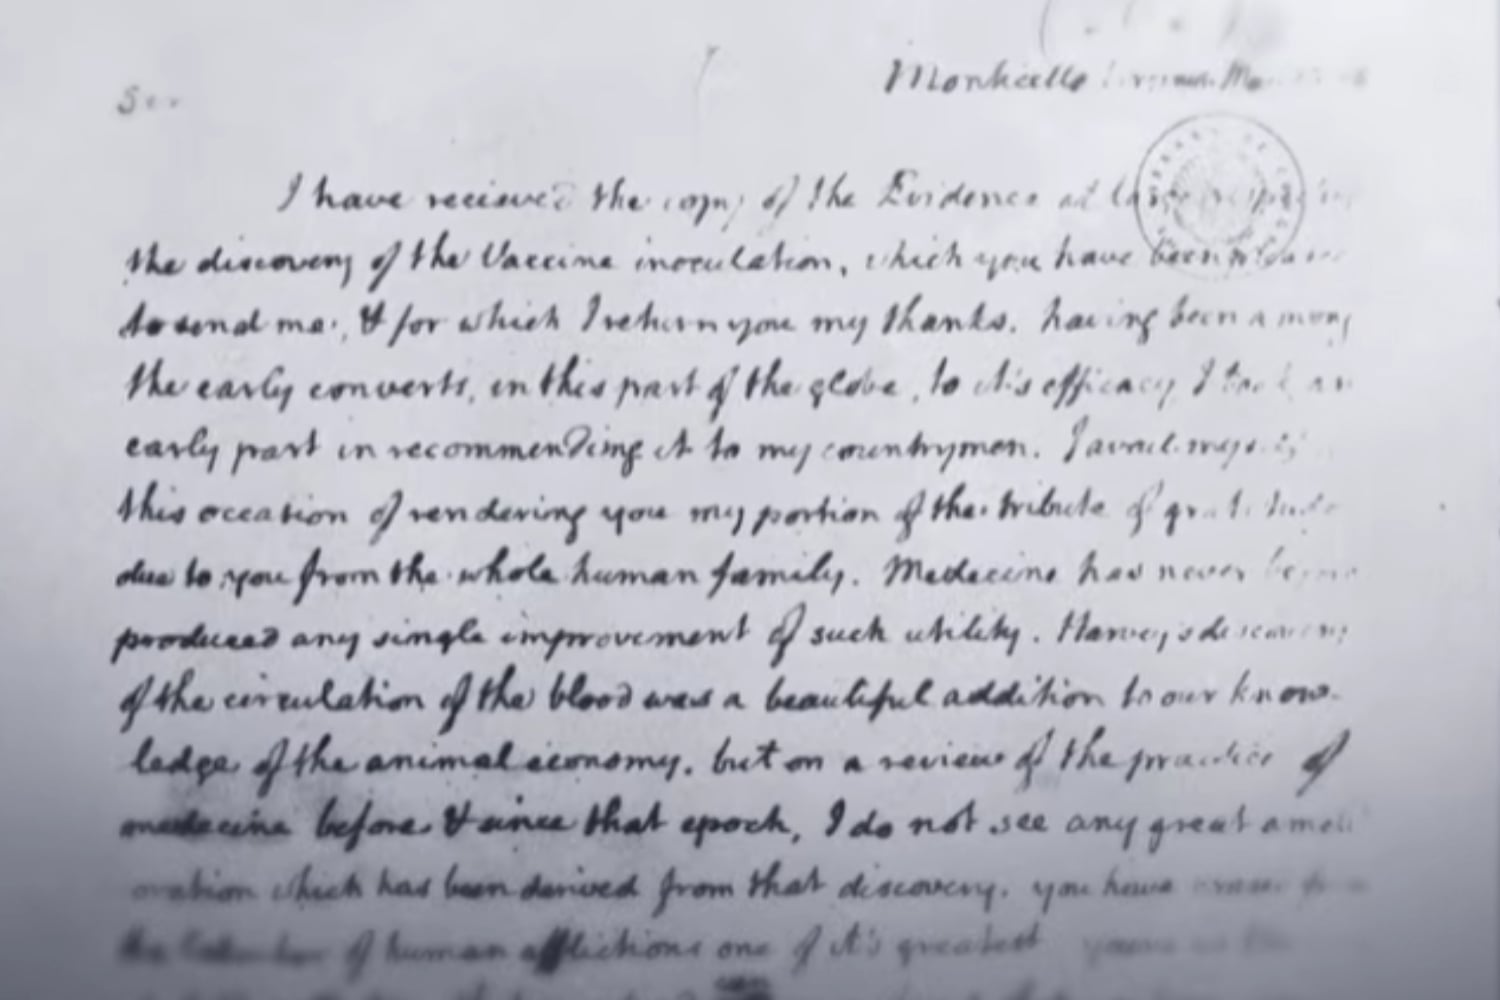 Monticello
Sir
I have recieved the copy of the Evidence at large respecting
the discovery of the Vaccine inoculation, which you have been pleased
to send me, & for which I return you my thanks. having been among
the early converts, in this part of the globe, to it's efficacy, I took an
early part in recommending it to my countrymen. I avail myself of
this occasion of rendering you my portion of the tribute of gratitude
due to you from the whole human family. Medecine has never before
produced any single improvement of such utility. Harvey's discovery
of the circulation of the blood was a beautiful addition to our know-
ledge of the animal economy. but on a review of the practice of
medecine before & since that epoch, I do not see any great ameli
oration which has been derived from that discovery. you have
of human afflictions one of it's greatest